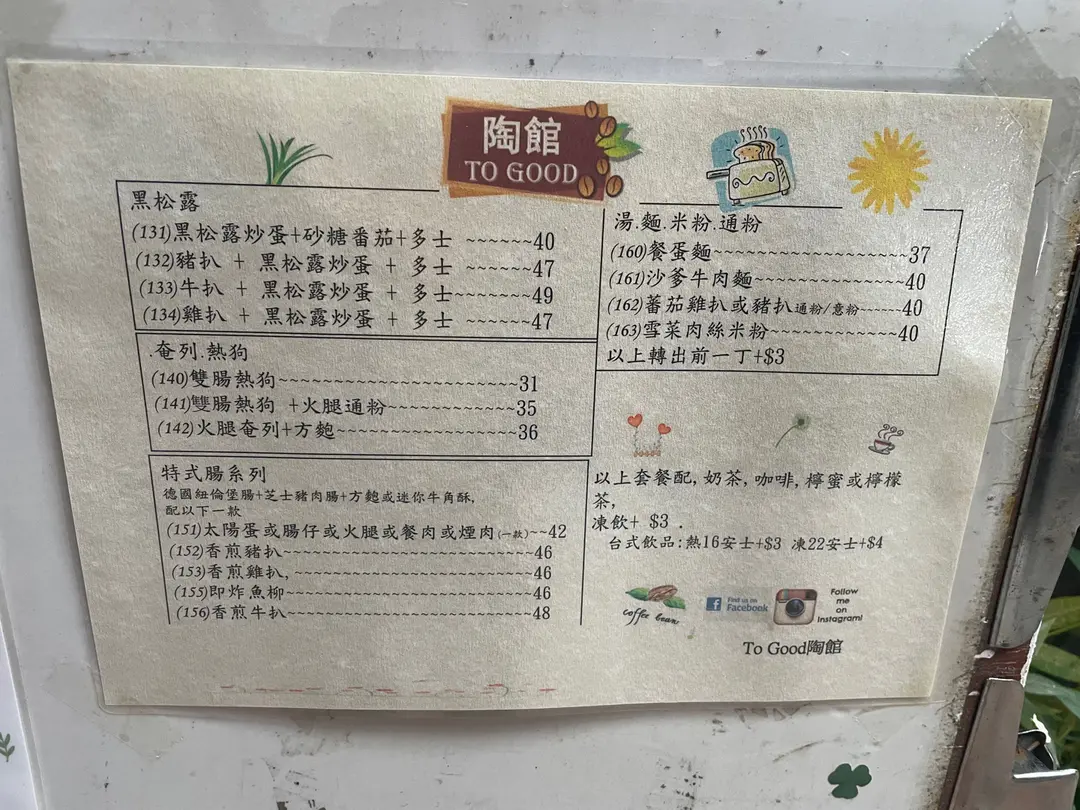 陶館
TO GOOD
黑松露
(131)黑松露炒蛋+砂糖番茄+多士 ~~~~~~40
(132)豬扒 + 黑松露炒蛋 + 多士 ~~~~~~47
(133)牛扒 + 黑松露炒蛋 + 多士~~~~~~~49
(134)雞扒 + 黑松露炒蛋 + 多士 ~~~~~~47
.奄列.熱狗
(140)雙腸熱狗~~~~~~~~~~~~~~~~~~~~~~~31
(141)雙腸熱狗 +火腿通粉~~~~~~~~~~~~35
(142)火腿奄列+方麭~~~~~~~~~~~~~~~~~36
特式腸系列
德國紐倫堡腸+芝士豬肉腸+方麭或迷你牛角酥,
配以下一款
(151)太陽蛋或腸仔或火腿或餐肉或煙肉(一款)~~42
(152)香煎豬扒~~~~~~~~~~~~~~~~~~~~~~~~46
(153)香煎雞扒,~~~~~~~~~~~~~~~~~~~~~~~46
(155)即炸魚柳~~~~~~~~~~~~~~~~~~~~~~~~46
(156)香煎牛扒~~~~~~~~~~~~~~~~~~~~~~~~48
湯.麵.米粉.通粉
(160)餐蛋麵~~~~~~~~~~~~~~~~~~~37
(161)沙爹牛肉麵~~~~~~~~~~~~~~~40
(162)蕃茄雞扒或豬扒通粉/意粉~~~~~40
(163)雪菜肉絲米粉~~~~~~~~~~~~~40
以上轉出前一丁+$3
以上套餐配, 奶茶, 咖啡, 檸蜜或檸檬
茶,
凍飲+ $3 .
台式飲品:熱16安士+$3 凍22安士+$4
coffee bean
Find us on
Facebook
Follow
me
on
Instagram!
To Good陶館